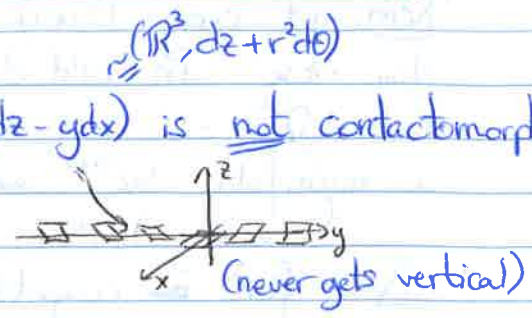 ≅ (ℝ³, dz + r²dθ)
dz - ydx) is not contactomorp
z
y
x
(never gets vertical)